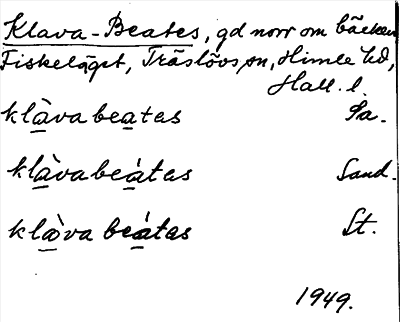 Klava-Beates, gd norr om bäcken
Fiskeläget, Träslövs sn, Himle hd,
Hall. l.
klàva beatas Sa.
klàvabeátas Sand.
klàva beátas St.
1949.